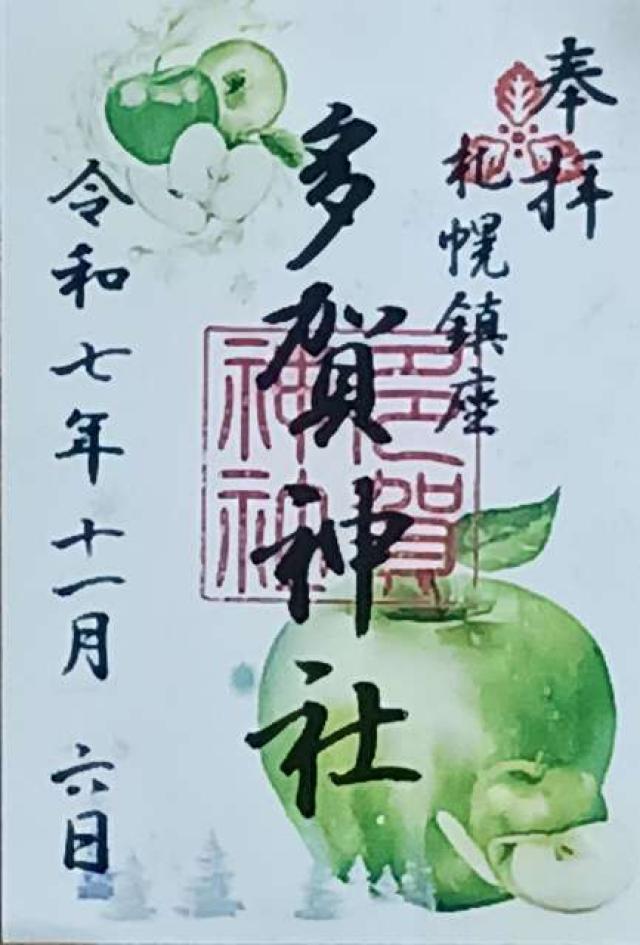 奉拝
札幌鎮座
多賀神社
令和七年十一月六日